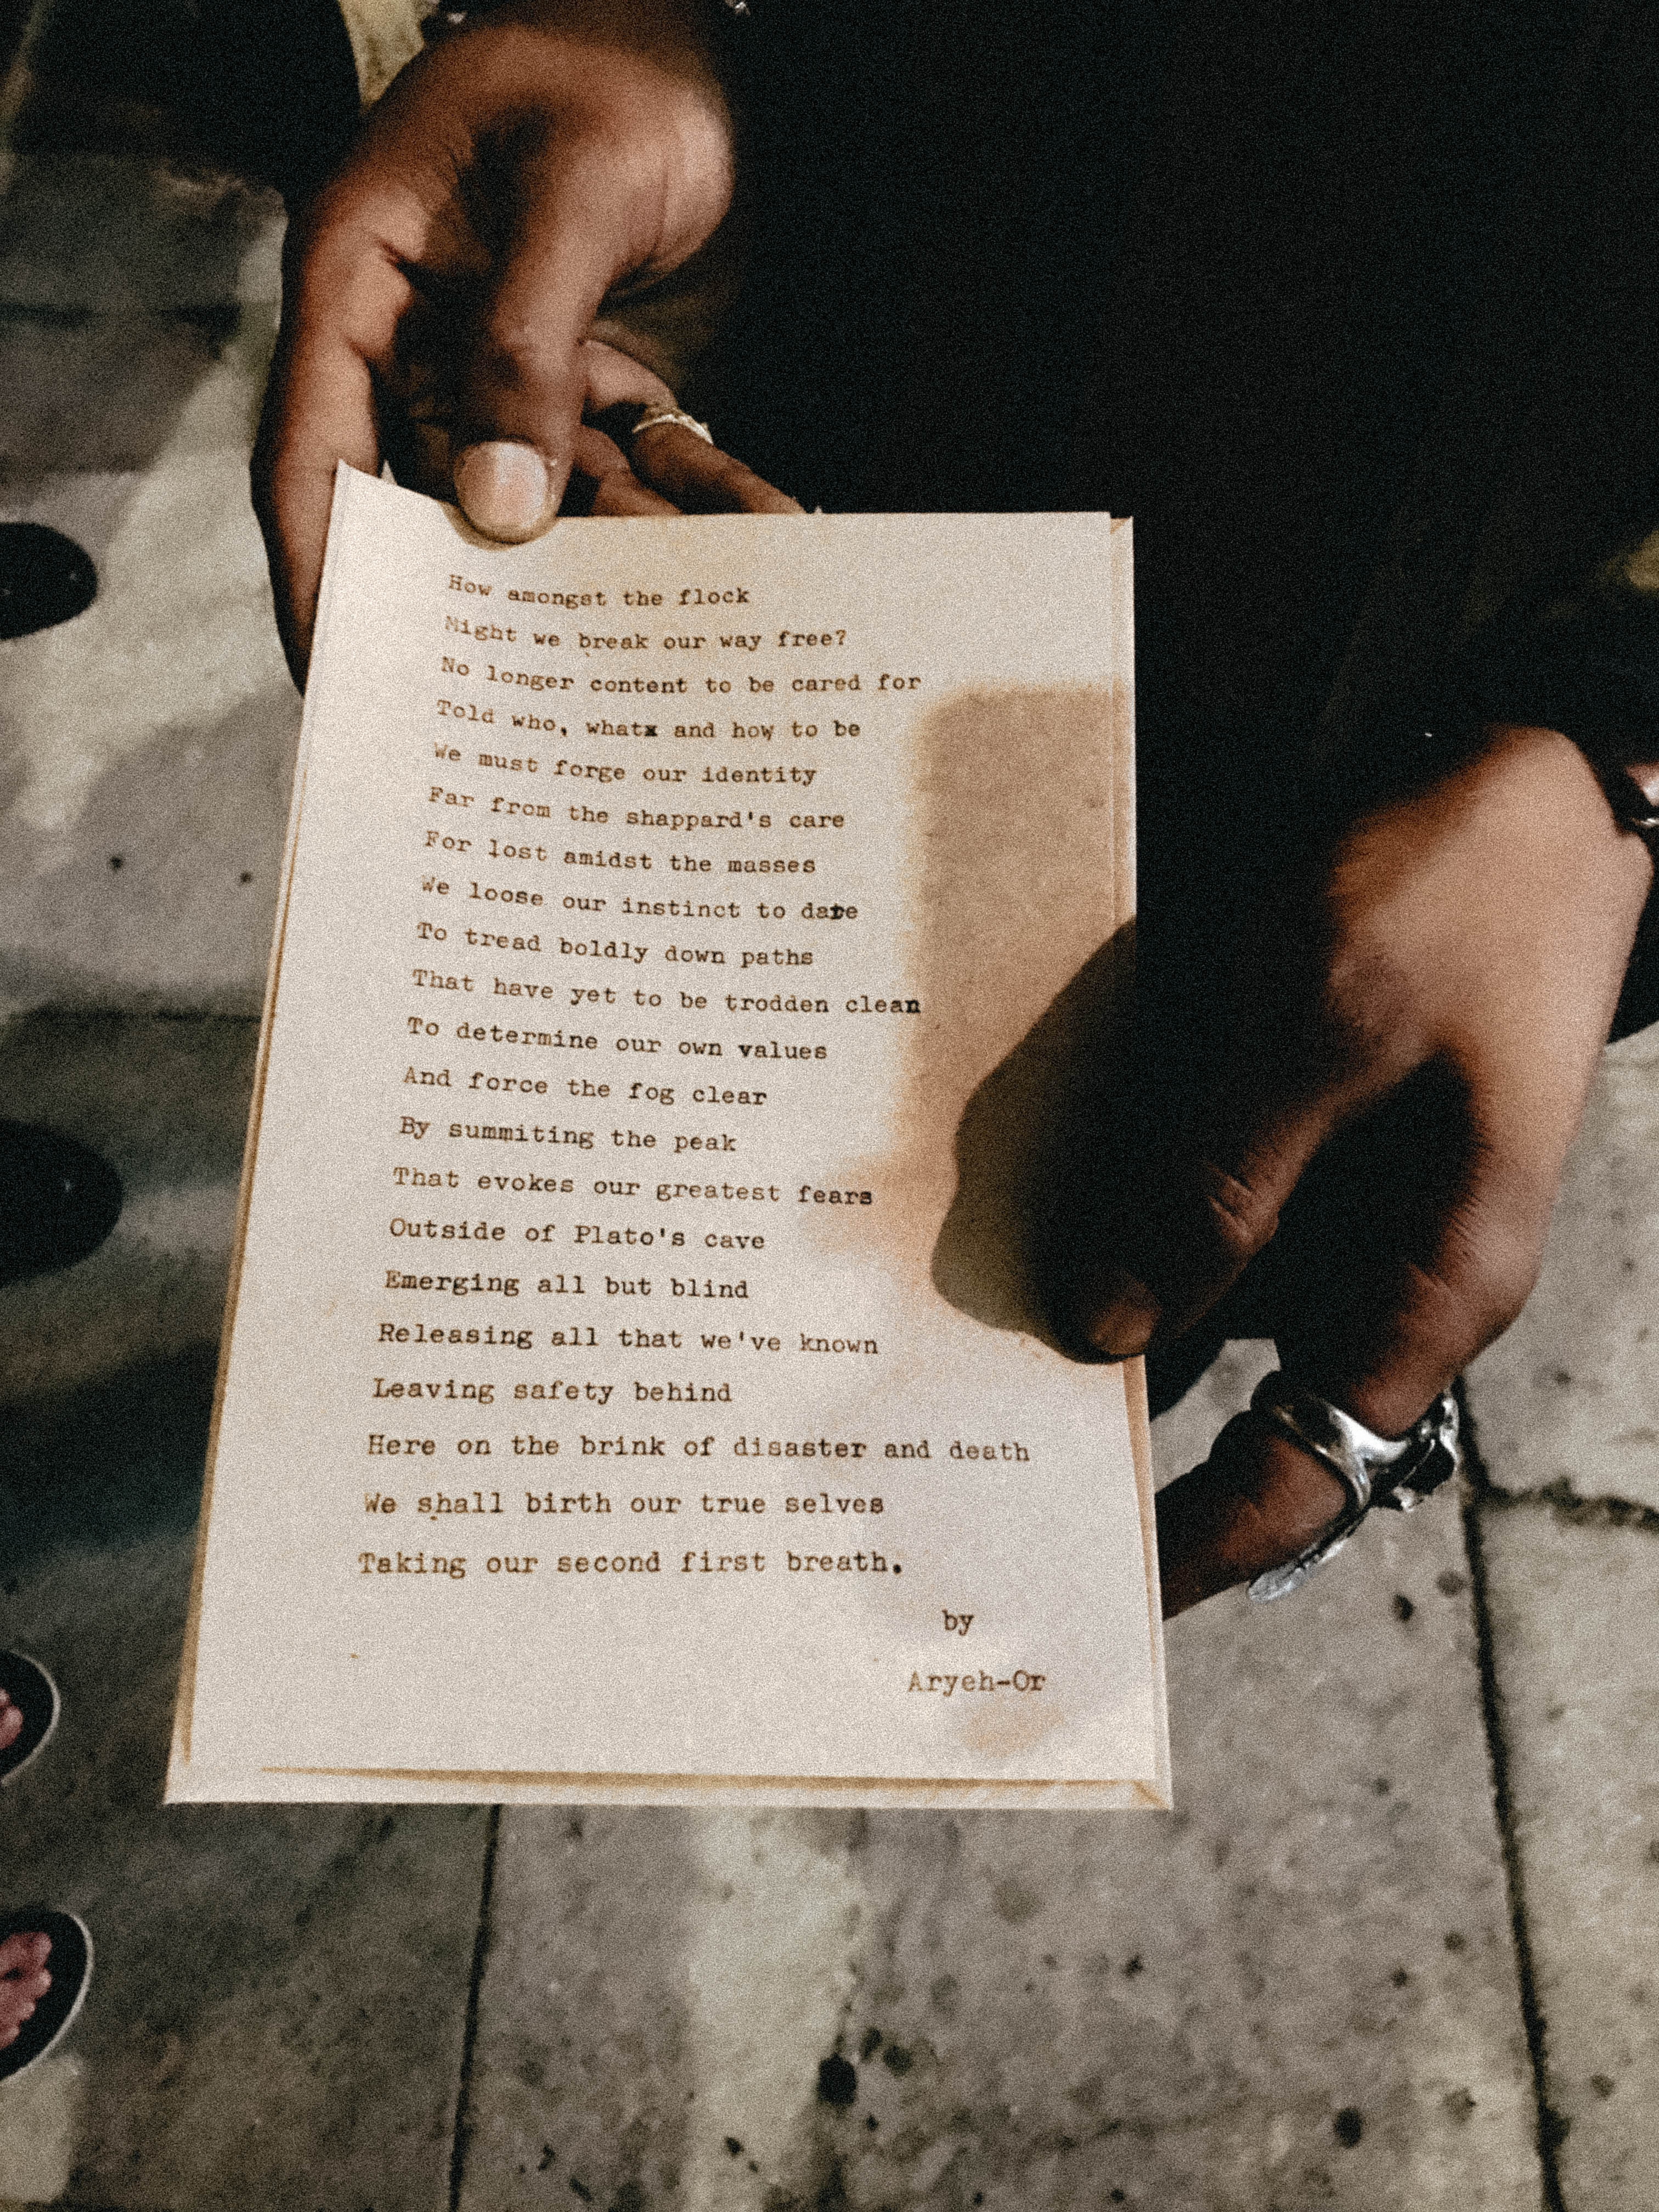 How amongst the flock
Might we break our way free?
No longer content to be cared for
Told who, whatx and how to be
We must forge our identity
Far from the shappard's care
For lost amidst the masses
We loose our instinct to dare
To tread boldly down paths
That have yet to be trodden clean
To determine our own values
And force the fog clear
By summiting the peak
That evokes our greatest fears
Outside of Plato's cave
Emerging all but blind
Releasing all that we've known
Leaving safety behind
Here on the brink of disaster and death
We shall birth our true selves
Taking our second first breath.
by
Aryeh-Or